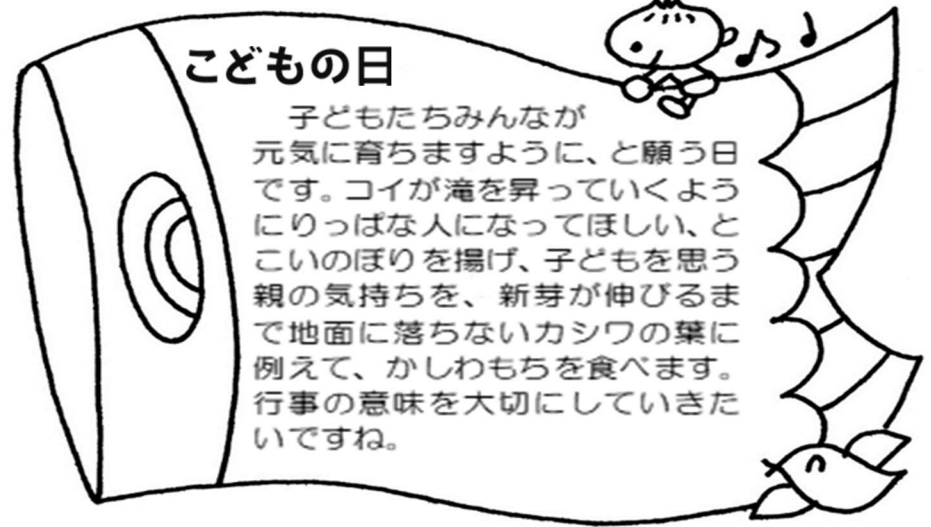 こどもの日
子どもたちみんなが
元気に育ちますように、と願う日
です。コイが滝を昇っていくよう
にりっぱな人になってほしい、と
こいのぼりを揚げ、子どもを思う
親の気持ちを、新芽が伸びるま
で地面に落ちないカシワの葉に
例えて、かしわもちを食べます。
行事の意味を大切にしていきた
いですね。